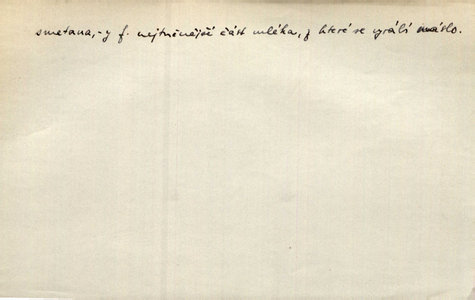 smetana, -y f. nejtučnější část mléka, z které se vyrábí máslo.